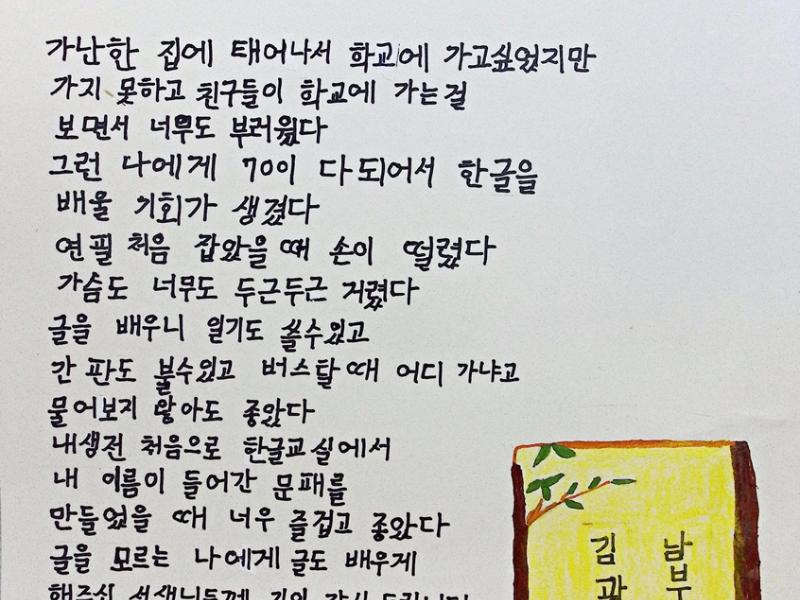 가난한 집에 태어나서 학교에 가고싶었지만
가지 못하고 친구들이 학교에 가는걸
보면서 너무도 부러웠다
그런 나에게 70이 다되어서 한글을
배울 기회가 생겼다
연필 처음 잡았을때 손이 떨렸다
가슴도 너무도 두근두근 거렸다
글을 배우니 일기도 쓸수있고
간판도 볼수있고 버스탈때 어디 가냐고
물어보지 않아도 좋았다
내생전 처음으로 한글교실에서
내 이름이 들어간 문패를
만들었을 때 너무 즐겁고 좋았다
글을 모르는 나에게 글도 배우게
해주신 선생님들께
김
남부